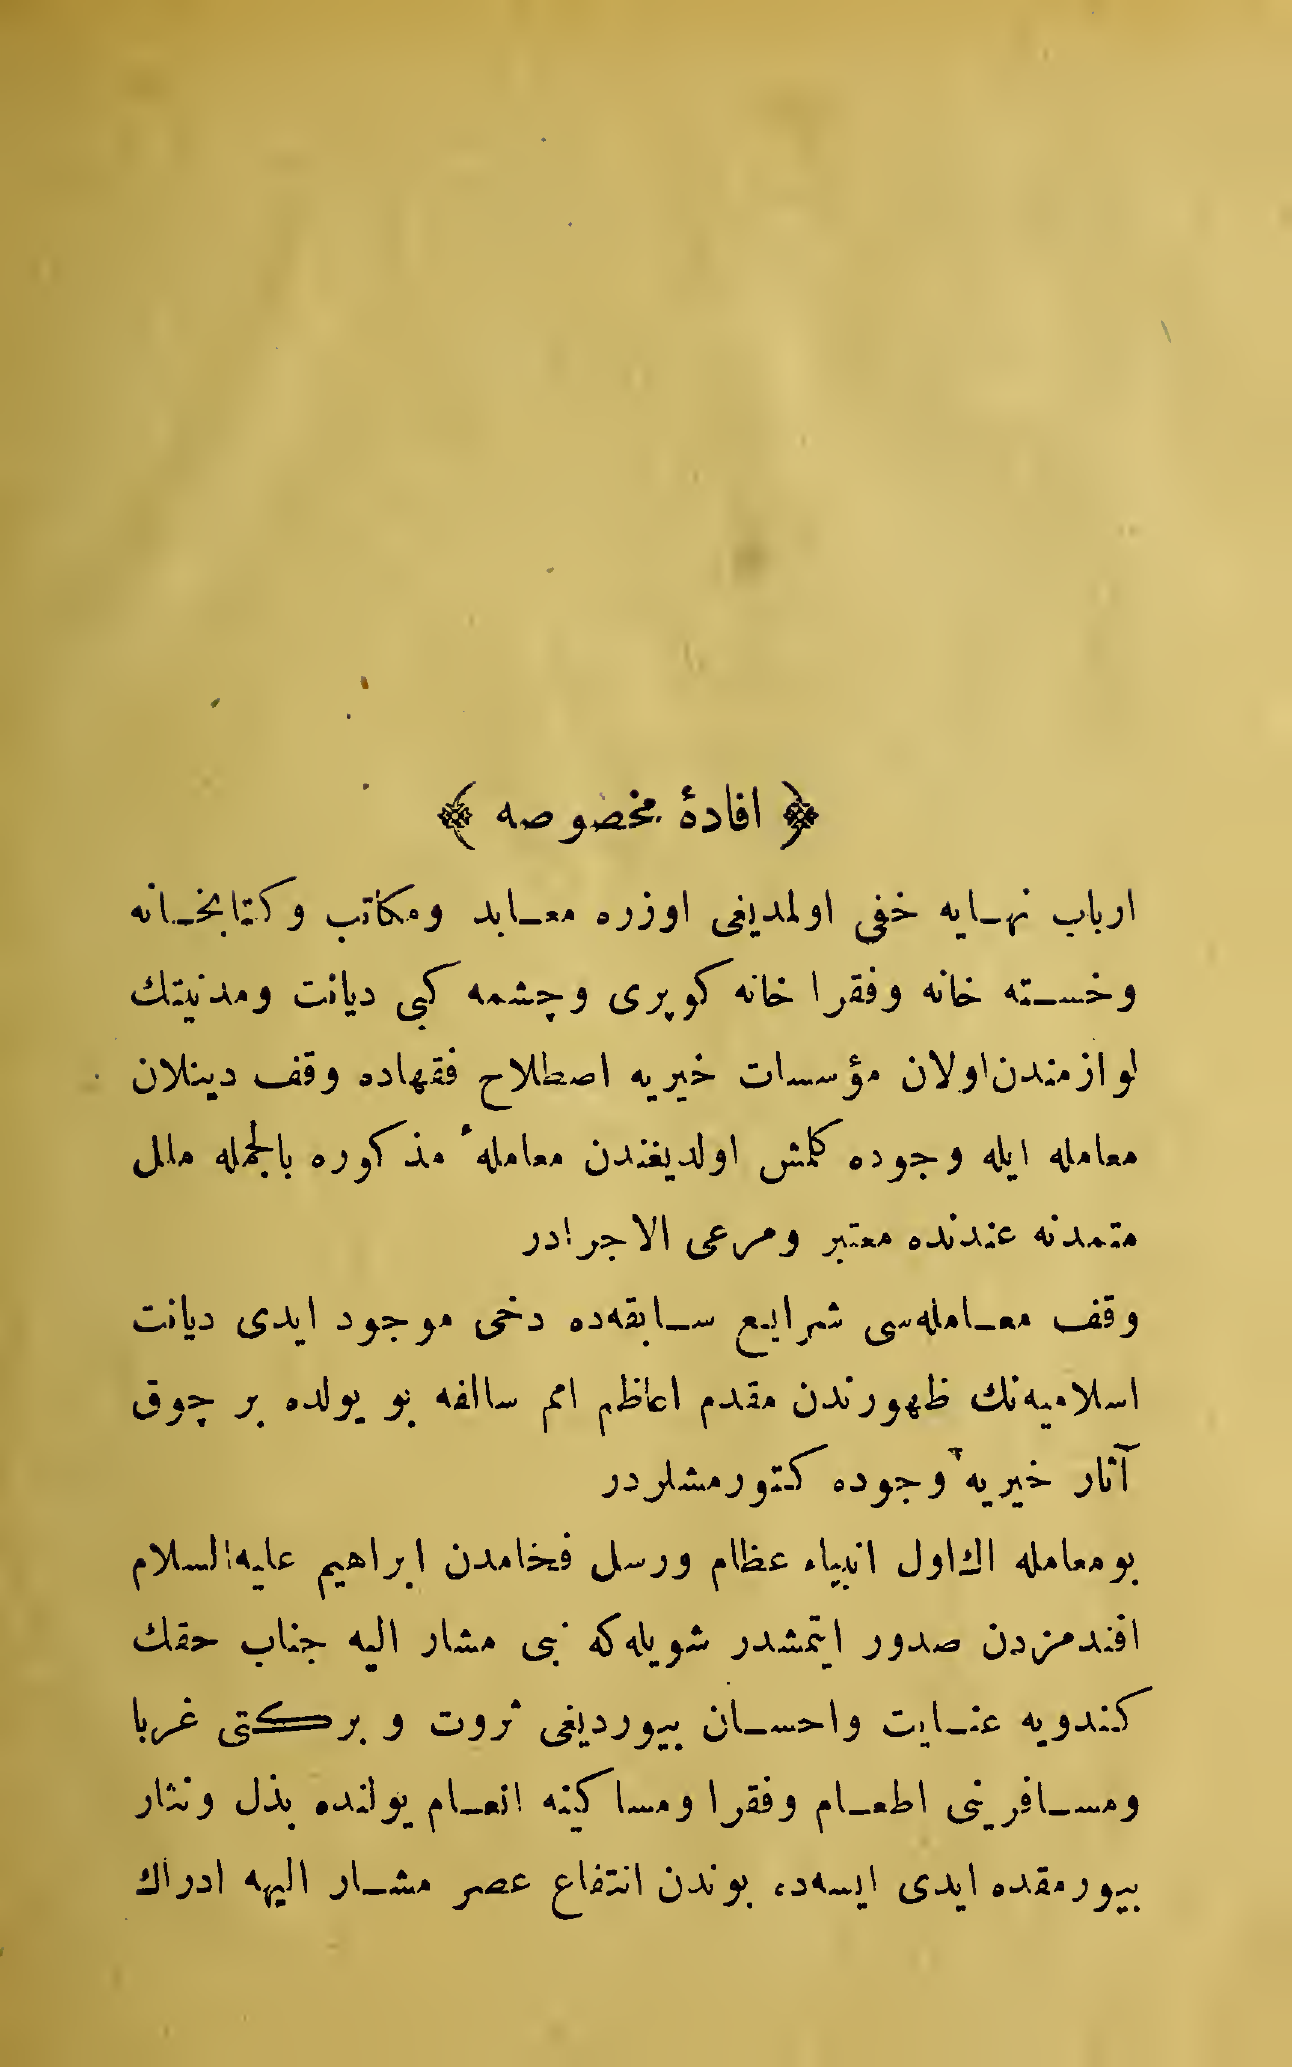 ﴿ افادهٔ مخصوصه ﴾
ارباب نهايه خفى اولمديغى اوزره معابد ومكاتب وكتابخانه
وخسته خانه وفقرا خانه كوپرى وچشمه كبى ديانت ومدنيتك
لوازمندن اولان مؤسسات خيريه اصطلاح فقهاده وقف دينلان
معامله ايله وجوده كلمش اولديغندن معاملهٔ مذكوره بالجمله ملل
متمدنه عندنده معتبر ومرعى الاجرادر
وقف معامله‌سى شرايع سابقه‌ده دخى موجود ايدى ديانت
اسلاميه‌نك ظهورندن مقدم اعاظم امم سالفه بو يولده بر چوق
آثار خيريه وجوده كتورمشلردر
بومعامله اك اول انبياء عظام ورسل فخامدن ابراهيم عليه‌السلام
افندمزدن صدور ايتمشدر شويله‌كه نبى مشار اليه جناب حقك
كندويه عنايت واحسان بيورديغى ثروت و بركتى غربا
ومسافرينى اطعام وفقرا ومساكينه انعام يولنده بذل ونثار
بيورمقده ايدى ايسه‌ده بوندن انتفاع عصر مشار اليهه ادراك